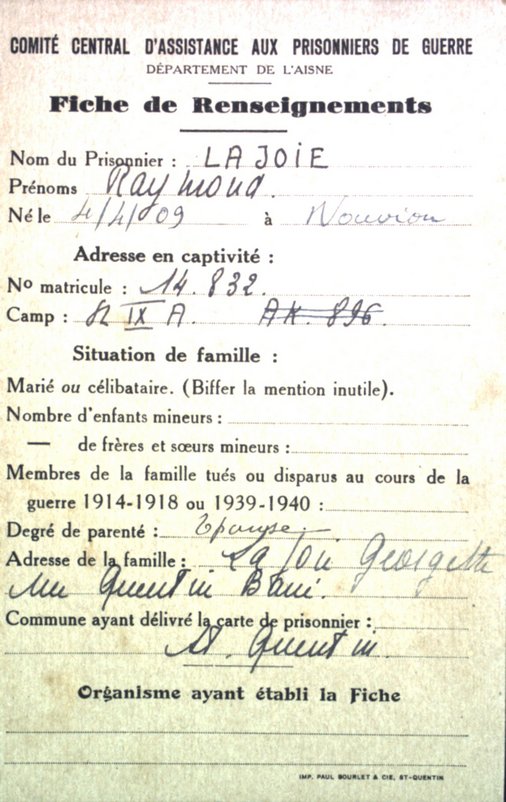 COMITÉ CENTRAL D'ASSISTANCE AUX PRISONNIERS DE GUERRE
DÉPARTEMENT DE L'AISNE
Fiche de Renseignements
Nom du Prisonnier : LAJOIE
Prénoms Raymond.
Né le 4/4/09 à Nouvion
Adresse en captivité :
No matricule : 14.832.
Camp : IX A. AK. 896.
Situation de famille :
Marié ou célibataire. (Biffer la mention inutile).
Nombre d'enfants mineurs :
— de frères et sœurs mineurs :
Membres de la famille tués ou disparus au cours de la
guerre 1914-1918 ou 1939-1940 :
Degré de parenté : Epouse
Adresse de la famille : Lajoie Georgette
rue Quentin Barré.
Commune ayant délivré la carte de prisonnier :
St. Quentin
Organisme ayant établi la Fiche
IMP. PAUL BOURLET & CIE, ST-QUENTIN